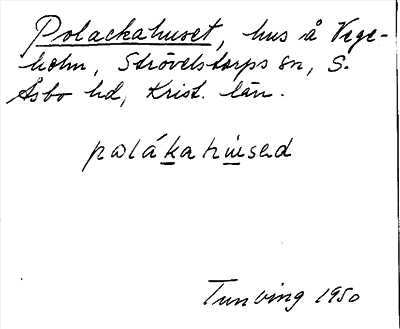 Polackahuset, hus å Vege-
holm, Strövelstorps sn, S.
Åsbo hd, Krist. län.
palákahused
Tunving 1950